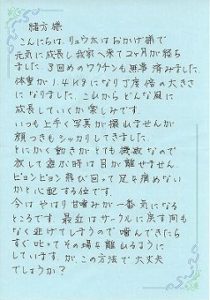 緒方様
こんにちは。リュウ太はおかげ様で
元気に成長し我家へ来て2ヶ月が経ち
ました。3回めのワクチンも無事済みました。
体重が1.4KGになり丁度倍の大きさ
になりました。これからどんな風に
成長していくか楽しみです。
いつも上手く写真が撮れませんが
顔つきもシャカリしてきました。
とにかく動きがとても機敏なので
放して遊ぶ時は目が離せません。
ピョンピョン飛び回って足を痛めない
かと心配する位です。
今はやはり甘噛みが一番気になる
ところです。最近はサークルに戻す向も
なく逃げてしまうので噛んできたら
すぐ叱ってその場を離れるように
していますが、この方法で大丈夫
でしょうか?